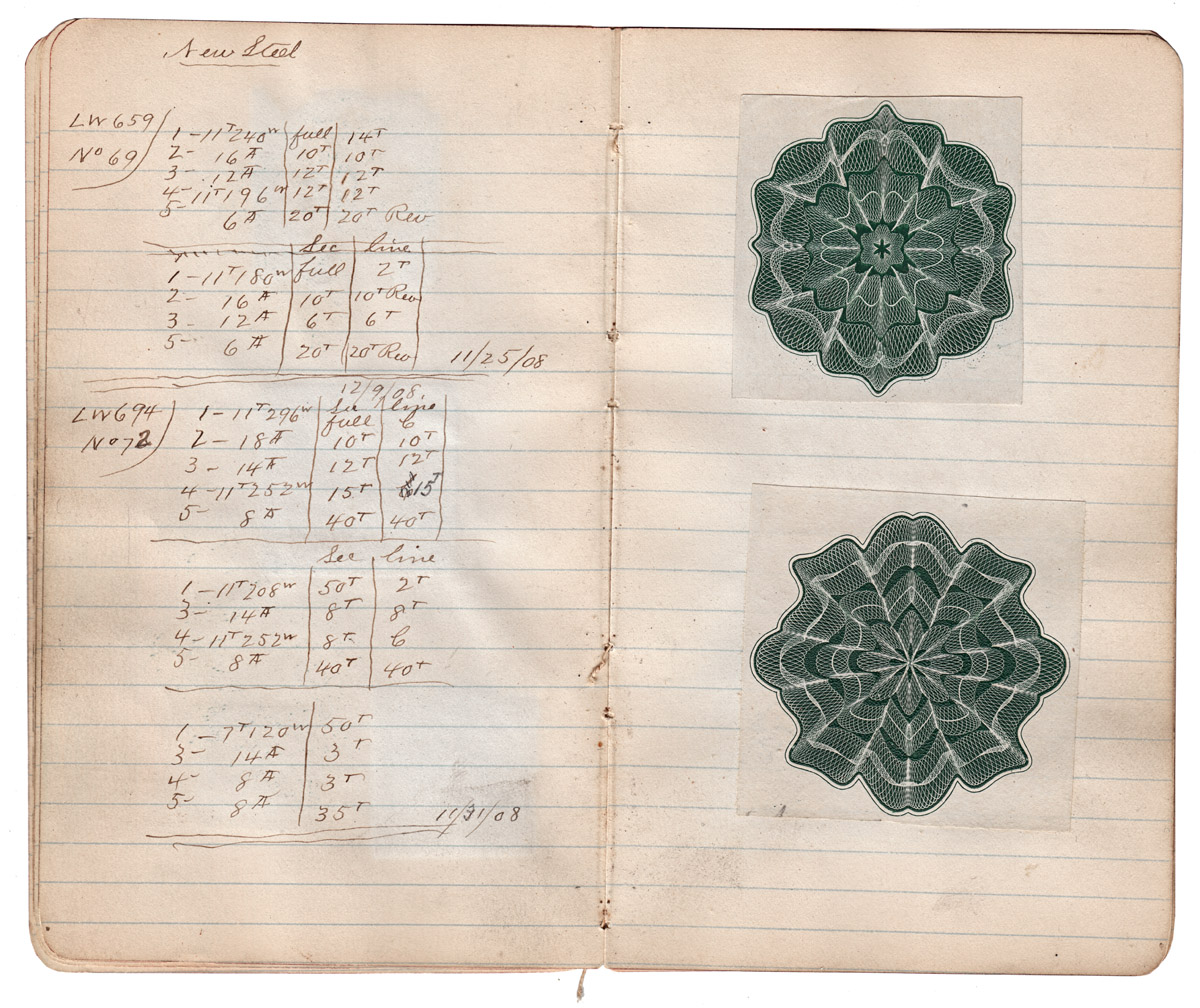 New Steel
LW 659
No 69
1 - 11ᵀ 240ʷ full 14ᵀ
2 - 16 A 10ᵀ 10ᵀ
3 - 12 A 12ᵀ 12ᵀ
4 - 11ᵀ 196ʷ 12ᵀ 12ᵀ
5 - 6 A 20ᵀ 20ᵀ Rev
Sec line
1 - 11ᵀ 180ʷ full 2ᵀ
2 - 16 A 10ᵀ 10ᵀ Rev
3 - 12 A 6ᵀ 6ᵀ
5 - 6 A 20ᵀ 20ᵀ Rev
11/25/08
12/9/08
LW 694
No 72
Sec line
1 - 11ᵀ 296ʷ full 6
2 - 18 A 10ᵀ 10ᵀ
3 - 14 A 12ᵀ 12ᵀ
4 - 11ᵀ 252ʷ 15ᵀ 15ᵀ
5 - 8 A 40ᵀ 40ᵀ
Sec line
1 - 11ᵀ 208ʷ 50ᵀ 2ᵀ
3 - 14 A 8ᵀ 8ᵀ
4 - 11ᵀ 252ʷ 8ᵀ 6
5 - 8 A 40ᵀ 40ᵀ
1 - 7ᵀ 120ʷ 50ᵀ
3 - 14 A 3ᵀ
4 - 8 A 3ᵀ
5 - 8 A 35ᵀ
11/31/08